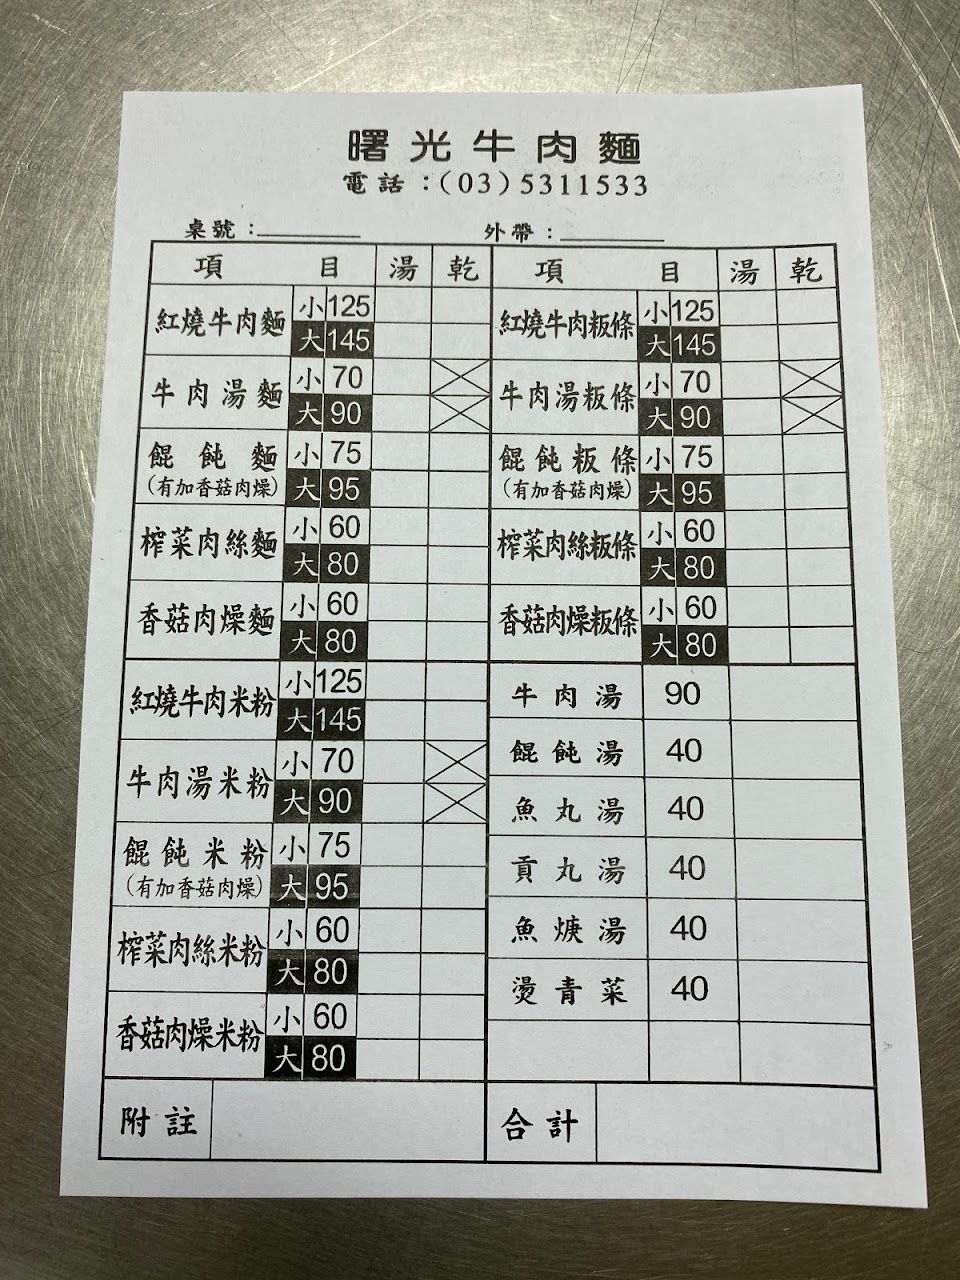 曙光牛肉麵
電話：(03)5311533
桌號：
外帶：
項 目 湯 乾
紅燒牛肉麵 小 125
大 145
牛肉湯麵 小 70
大 90
餛飩麵 小 75
(有加香菇肉燥) 大 95
榨菜肉絲麵 小 60
大 80
香菇肉燥麵 小 60
大 80
紅燒牛肉米粉 小 125
大 145
牛肉湯米粉 小 70
大 90
餛飩米粉 小 75
(有加香菇肉燥) 大 95
榨菜肉絲米粉 小 60
大 80
香菇肉燥米粉 小 60
大 80
附註
項 目 湯 乾
紅燒牛肉粄條 小 125
大 145
牛肉湯粄條 小 70
大 90
餛飩粄條 小 75
(有加香菇肉燥) 大 95
榨菜肉絲粄條 小 60
大 80
香菇肉燥粄條 小 60
大 80
牛肉湯 90
餛飩湯 40
魚丸湯 40
貢丸湯 40
魚焿湯 40
燙青菜 40
合計